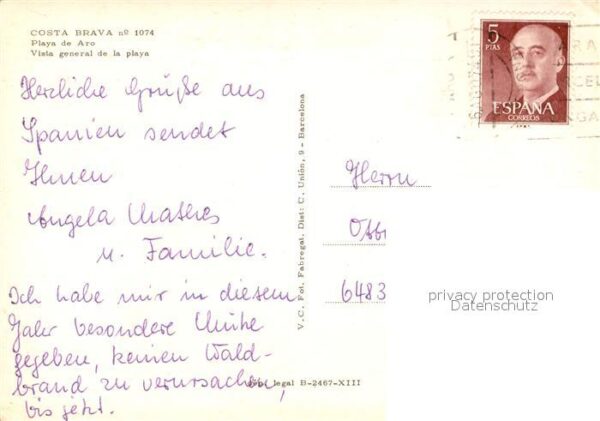 COSTA BRAVA nº 1074
Playa de Aro
Vista general de la playa
Herzliche Grüße aus
Spanien sendet
Ihnen
Angela Mathes
u. Familie.
Ich habe mir in diesem
Jahr besondere Mühe
gegeben, keinen Wald-
brand zu verursachen,
bis jetzt.
V. C. Fot. Fabregat, Dist: C. Unión, 9 - Barcelona
legal B-2467-XIII
5
PTAS
ESPAÑA
CORREOS
Herrn
Otto
6483
privacy protection
Datenschutz